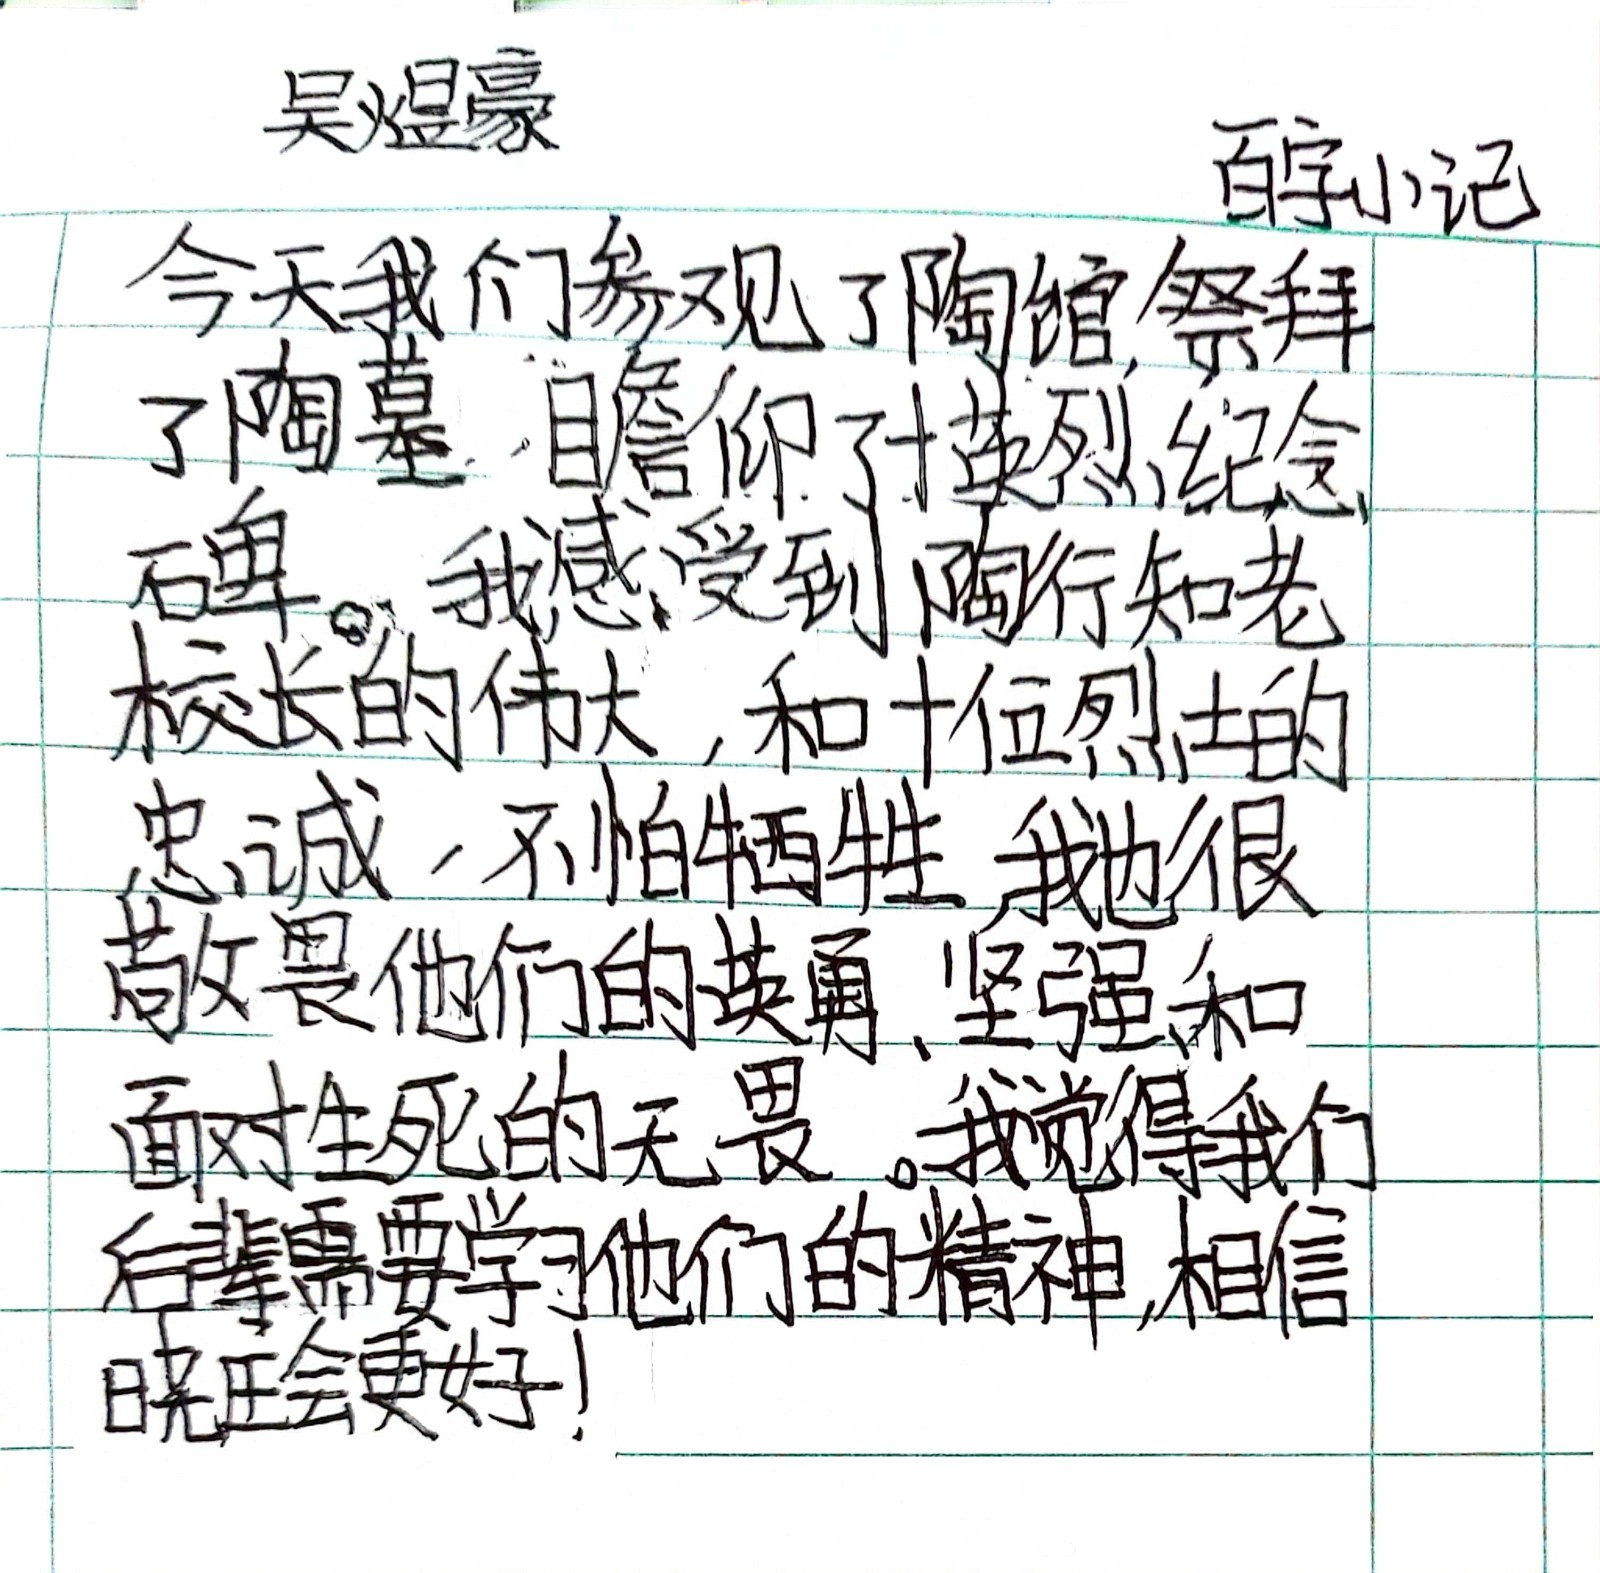 吴煜豪
百字小记
今天我们参观了陶馆,祭拜
了陶墓 瞻仰了十英烈纪念
碑。我感受到陶行知老
校长的伟大,和十位烈士的
忠诚,不怕牺牲,我也很
敬畏他们的英勇、坚强和
面对生死的无畏。我觉得我们
后辈需要学习他们的精神,相信
晓庄会更好!